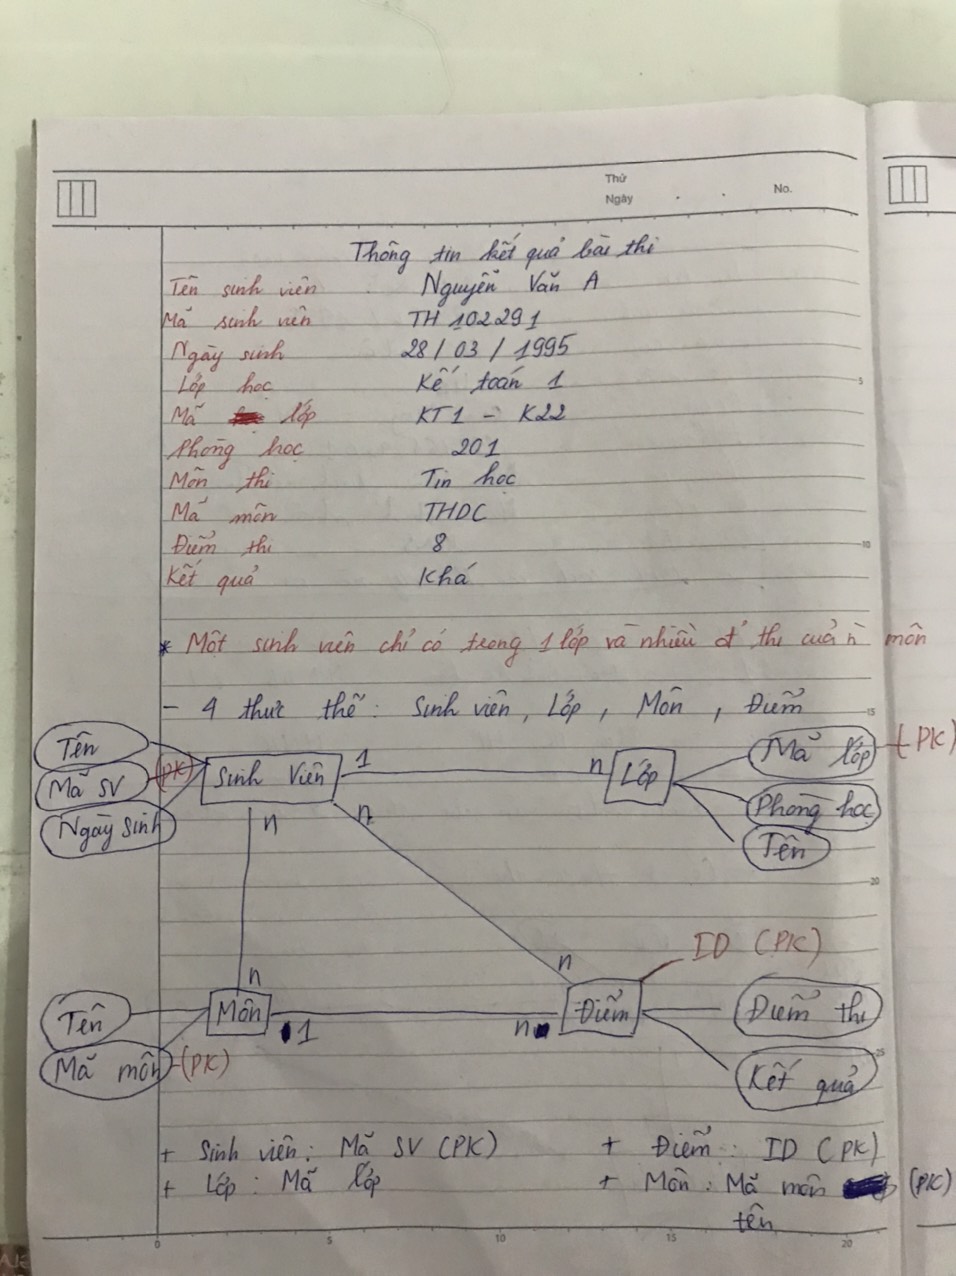 Thứ
Ngày . .
No.
Thông tin kết quả bài thi
Tên sinh viên Nguyễn Văn A
Mã sinh viên TH 102291
Ngày sinh 28 / 03 / 1995
Lớp học Kế toán 1
Mã lớp KT1 - K22
Phòng học 201
Môn thi Tin học
Mã môn THDC
Điểm thi 8
Kết quả Khá
* Một sinh viên chỉ có trong 1 lớp và nhiều đ' thi cuả n môn
- 4 thực thể : Sinh viên, Lớp, Môn, Điểm
Tên
Mã SV (PK)
Ngày sinh
Sinh Viên
1
n
Lớp
Mã lớp (PK)
Phòng học
Tên
n
n
n
n
ID (PK)
Tên
Mã môn (PK)
Môn
1
n
Điểm
Điểm thi
Kết quả
+ Sinh viên : Mã SV (PK)
+ Điểm : ID (PK)
+ Lớp : Mã lớp
+ Môn : Mã môn (PK)
tên
5
10
15
20
25
0
5
10
15
20